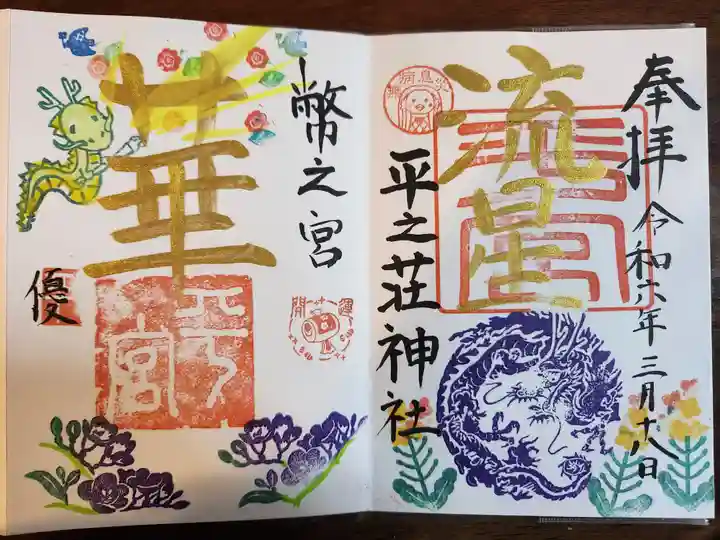 奉拝
令和六年三月十八日
流星
平之荘神社
無病息災
幣之宮
華
優
開運